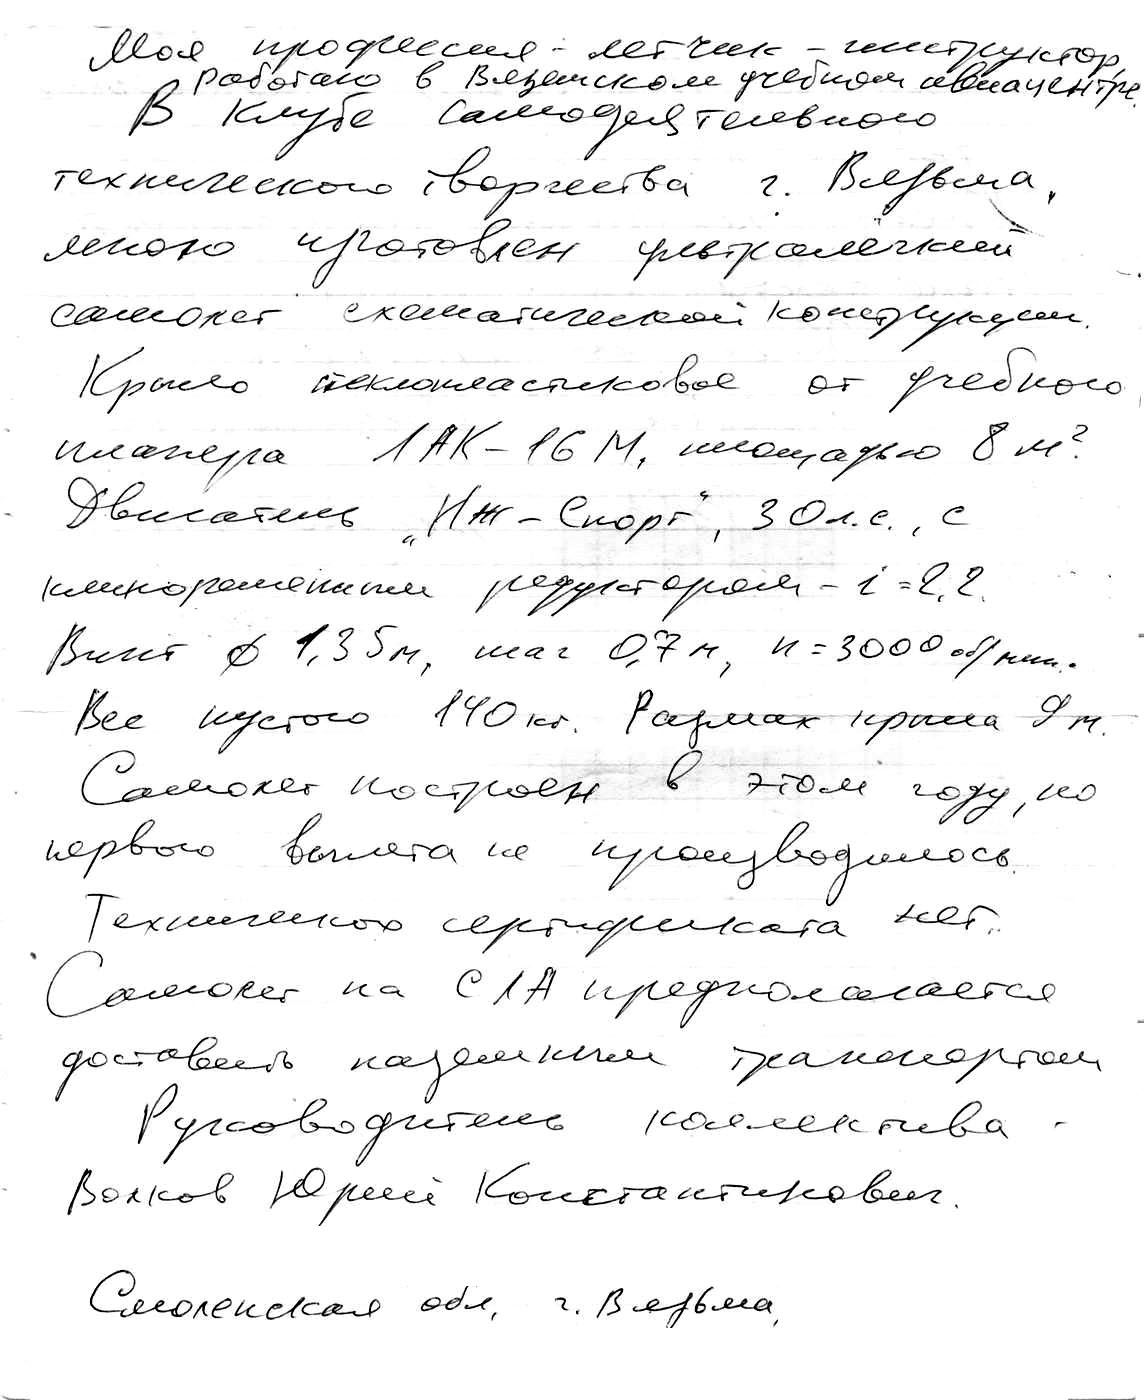 Моя профессия - летчик - инструктор,
работаю в Вяземском учебном авиацентре.
В Клубе самодеятельного
технического творчества г. Вязьма,
мною изготовлен ультралёгкий
самолет схематической конструкции.
Крыло стеклопластиковое от учебного
планера ЛАК-16М, площадью 8 м²
Двигатель „Иж-Спорт", 30 л.с., с
клиноременным редуктором - i = 2,2.
Винт ф 1,35м, шаг 0,7м, n = 3000 об/мин.
Вес пустого 140 кг. Размах крыла 9 м.
Самолет построен в этом году, но
первого вылета не производилось.
Технического сертификата нет.
Самолет на СЛА предполагается
доставить наземным транспортом
Руководитель коллектива -
Волков Юрий Константинович.
Смоленская обл, г. Вязьма,